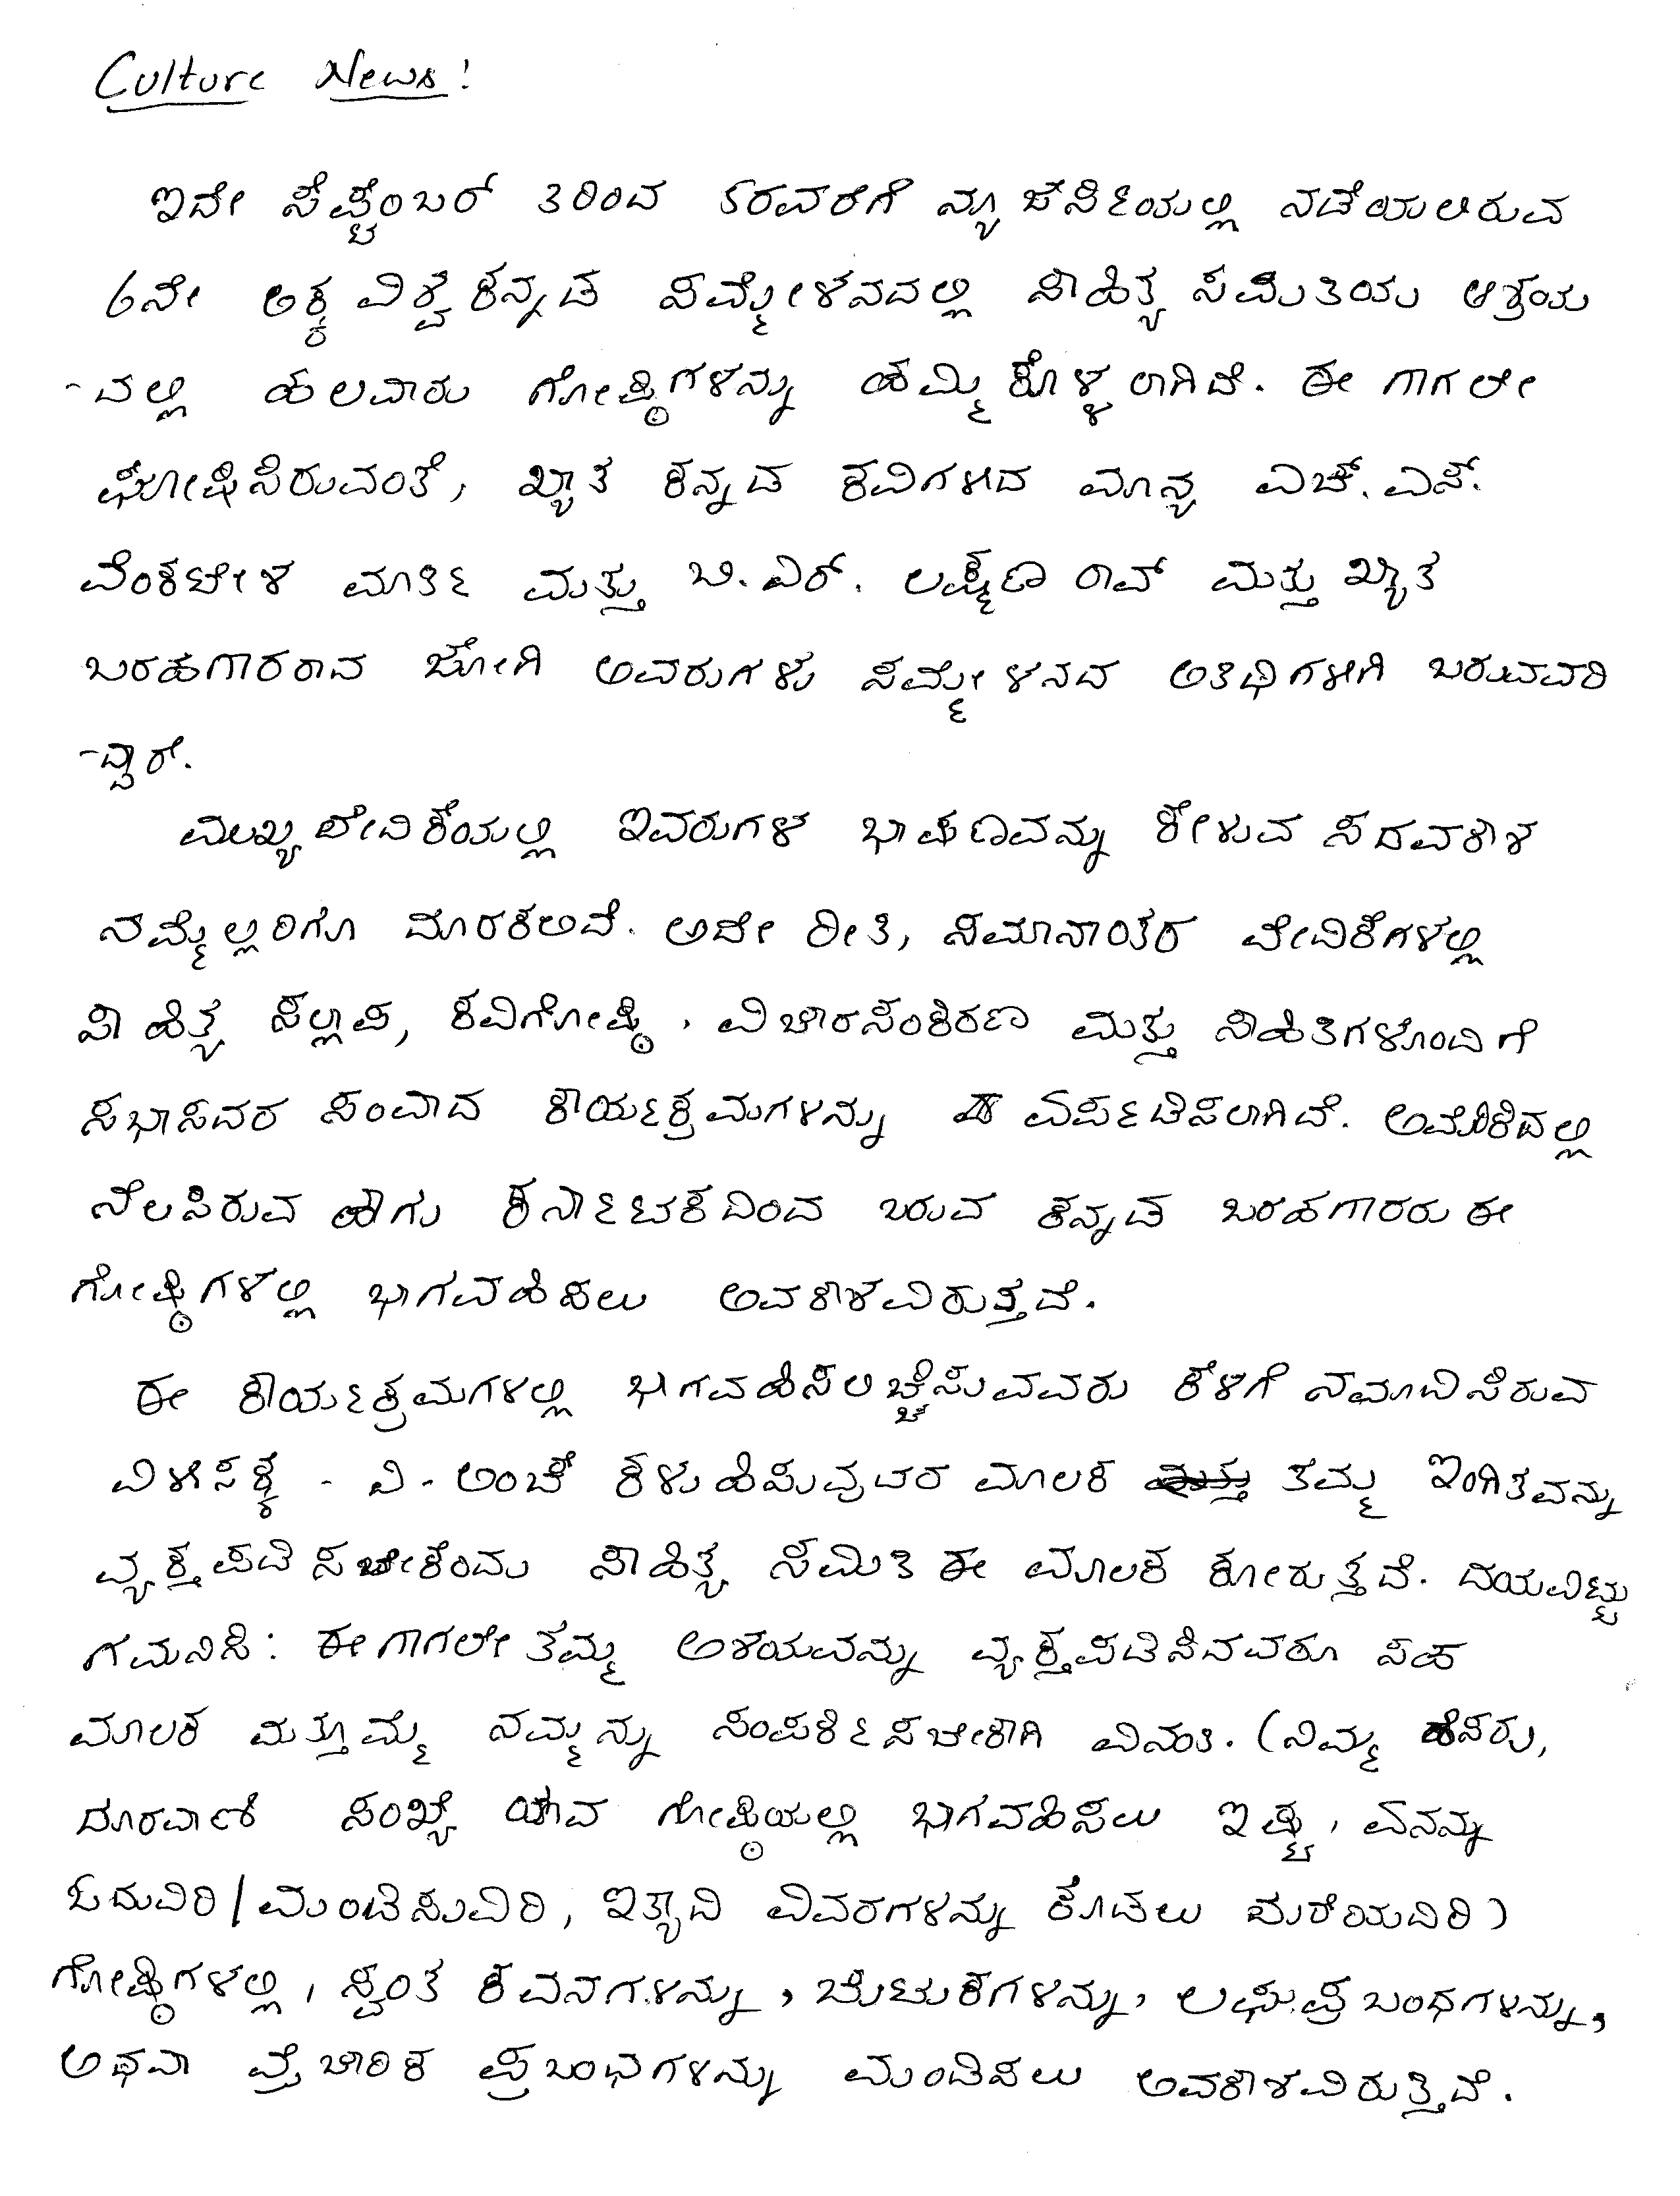 Culture News!
ಇದೇ ಸೆಪ್ಟೆಂಬರ್ 3ರಿಂದ 5ರವರೆಗೆ ನ್ಯೂಜೆರ್ಸಿಯಲ್ಲಿ ನಡೆಯಲಿರುವ
6ನೇ ಅಕ್ಕ ವಿಶ್ವಕನ್ನಡ ಸಮ್ಮೇಳನದಲ್ಲಿ ಸಾಹಿತ್ಯ ಸಮಿತಿಯು ಆಶ್ರಯ
-ದಲ್ಲಿ ಹಲವಾರು ಗೋಷ್ಠಿಗಳನ್ನು ಹಮ್ಮಿಕೊಳ್ಳಲಾಗಿದೆ. ಈ ಗಾಗಲೇ
ಘೋಷಿಸಿರುವಂತೆ, ಖ್ಯಾತ ಕನ್ನಡ ಕವಿಗಳಾದ ಮಾನ್ಯ ಎಚ್. ಎಸ್.
ವೆಂಕಟೇಳ ಮೂರ್ತಿ ಮತ್ತು ಬಿ. ಎರ್. ಲಕ್ಷ್ಮಣ ರಾವ್ ಮತ್ತು ಖ್ಯಾತ
ಬರಹಗಾರರಾದ ಜೋಗಿ ಅವರುಗಳು ಸಮ್ಮೇಳನದ ಅತಿಥಿಗಳಾಗಿ ಬರುವವರಿ
-ದ್ದಾರ್.
ಮುಖ್ಯವೇದಿಕೆಯಲ್ಲಿ ಇವರುಗಳ ಭಾಷಣವನ್ನು ಕೇಳುವ ಸದವಕಾಶ
ನಮ್ಮೆಲ್ಲರಿಗೂ ದೂರಕಲಿದೆ. ಅದೇ ರೀತಿ, ಸಮಾನಾಂತರ ವೇದಿಕೆಗಳಲ್ಲಿ
ಸಾಹಿತ್ಯ ಸಲ್ಲಾಪ, ಕವಿಗೋಷ್ಠಿ, ವಿಚಾರಸಂಕಿರಣ ಮತ್ತು ಸಾಹಿತಿಗಳೊಂದಿಗೆ
ಸಭಾಸದರ ಸಂವಾದ ಕಾರ್ಯಕ್ರಮಗಳನ್ನು ಏರ್ಪಡಿಸಲಾಗಿದೆ. ಅಮೆರಿಕಾದಲ್ಲಿ
ನೆಲಸಿರುವ ಹಾಗು ಕರ್ನಾಟಕದಿಂದ ಬರುವ ಕನ್ನಡ ಬರಹಗಾರರು ಈ
ಗೋಷ್ಠಿಗಳಲ್ಲಿ ಭಾಗವಹಿಸಲು ಅವಕಾಶವಿರುತ್ತದೆ.
ಈ ಕಾರ್ಯಕ್ರಮಗಳಲ್ಲಿ ಭಾಗವಹಿಸಲಿಚ್ಚಿಸುವವರು ಕೆಳಗೆ ನಮೂದಿಸಿರುವ
ವಿಳಾಸಕ್ಕೆ - ವಿ - ಅಂಚೆ ಕಳುಹಿಸುವುದರ ಮೂಲಕ ತಮ್ಮ ಇಂಗಿತವನ್ನು
ವ್ಯಕ್ತಪಡಿಸಬೇಕೆಂದು ಸಾಹಿತ್ಯ ಸಮಿತಿ ಈ ಮೂಲಕ ಕೋರುತ್ತದೆ. ದಯವಿಟ್ಟು
ಗಮನಿಸಿ: ಈಗಾಗಲೇ ತಮ್ಮ ಆಶಯವನ್ನು ವ್ಯಕ್ತಪಡಿಸಿದವರೂ ಸಹ
ಮೂಲಕ ಮತ್ತೊಮ್ಮೆ ನಮ್ಮನ್ನು ಸಂಪರ್ಕಿಸಬೇಕಾಗಿ ವಿನಂತಿ. (ನಿಮ್ಮ ಹೆಸರು,
ದೂರವಾಣಿ ಸಂಖ್ಯೆ ಯಾವ ಗೋಷ್ಠಿಯಲ್ಲಿ ಭಾಗವಹಿಸಲು ಇಷ್ಟ, ಏನನ್ನು
ಓದುವಿರಿ/ಮಂಡಿಸುವಿರಿ, ಇತ್ಯಾದಿ ವಿವರಗಳನ್ನು ಕೊಡಲು ಮರೆಯದಿರಿ)
ಗೋಷ್ಠಿಗಳಲ್ಲಿ, ಸ್ವಂತ ಕವನಗಳನ್ನು, ಚುಟುಕಗಳನ್ನು, ಲಘುಪ್ರಬಂಧಗಳನ್ನು,
ಅಥವಾ ವೈಚಾರಿಕ ಪ್ರಬಂಧಗಳನ್ನು ಮಂಡಿಸಲು ಅವಕಾಶವಿರುತ್ತಿದೆ.